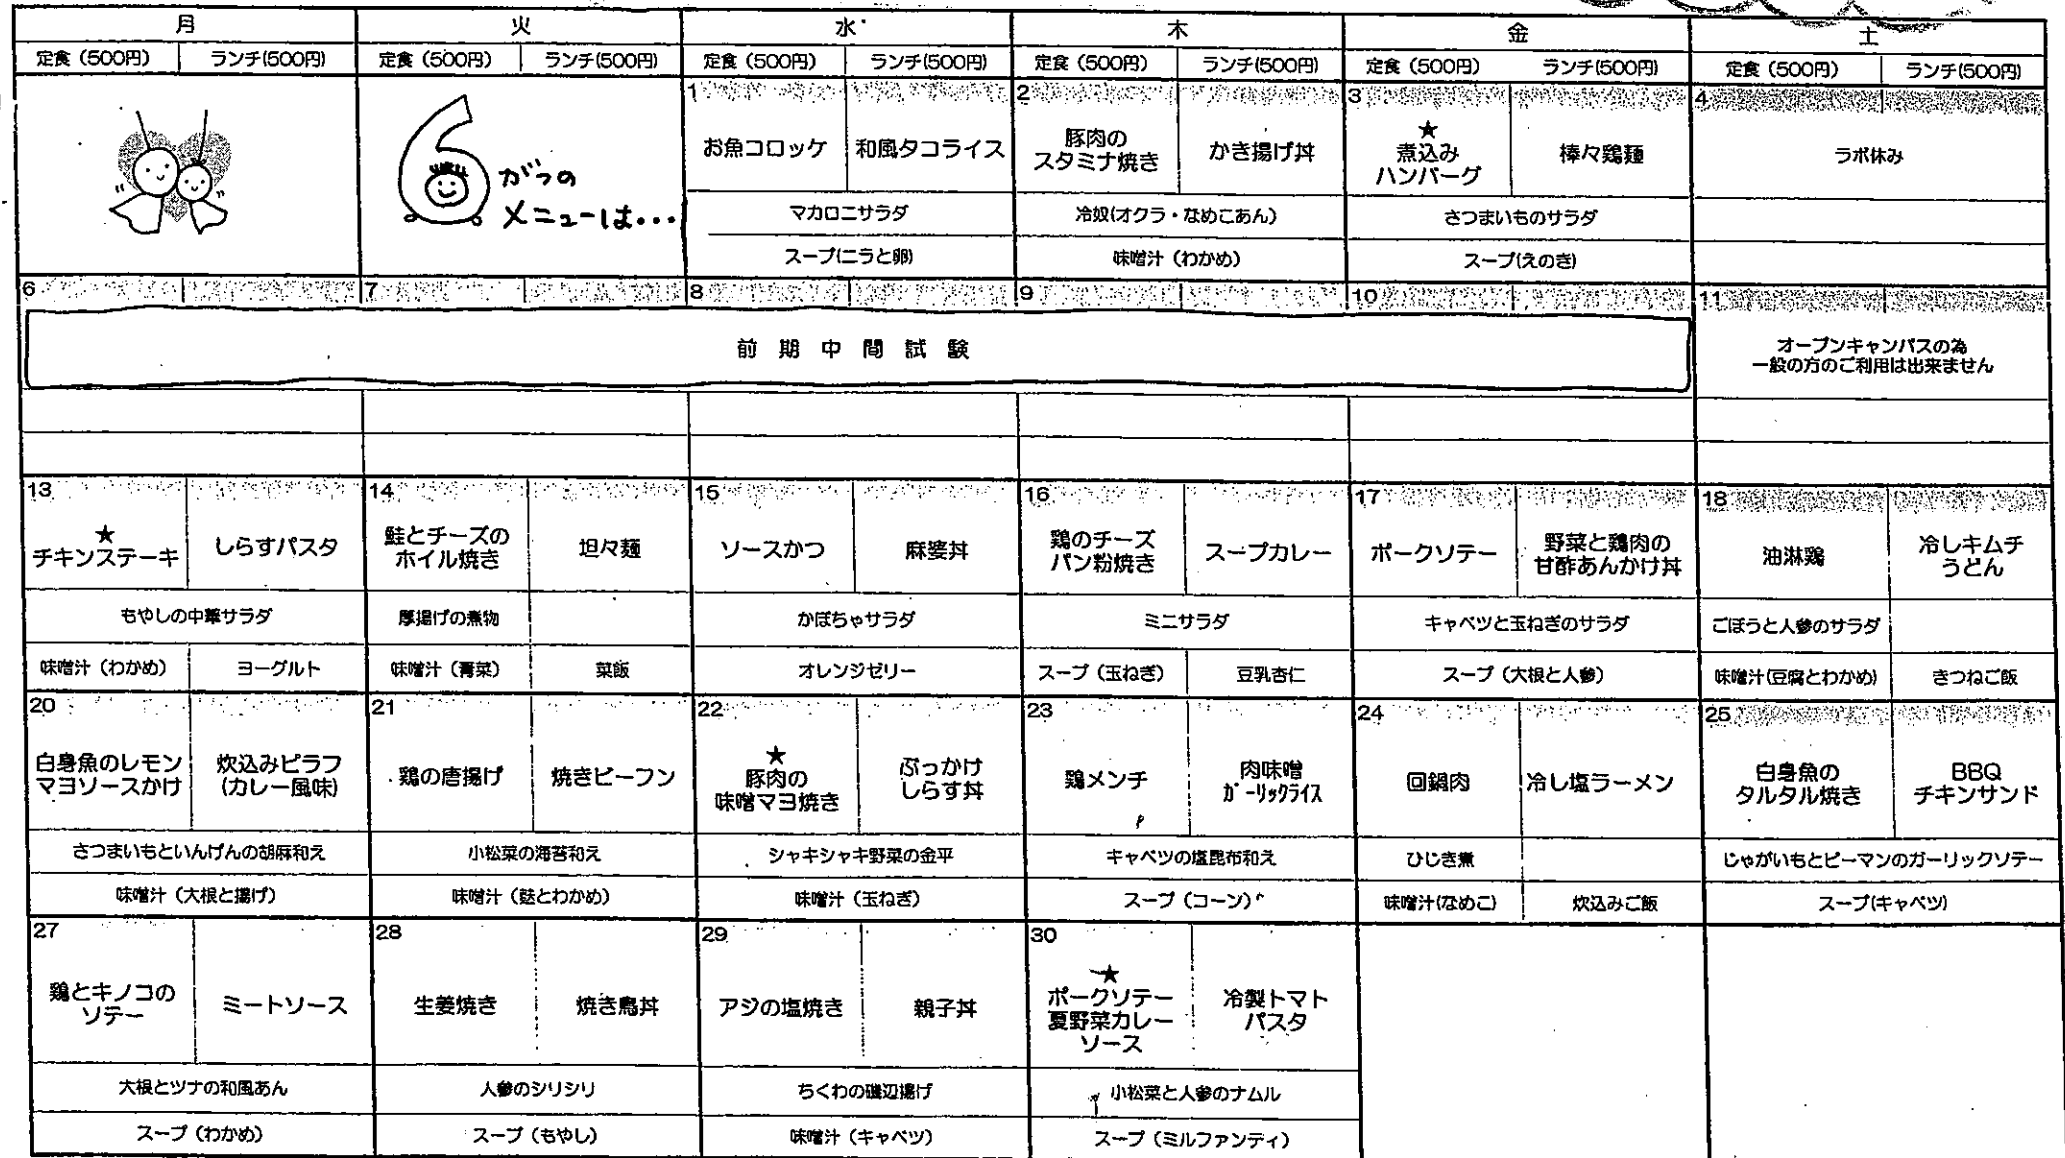 月 火 水 木 金 土
定食（500円） ランチ(500円) 定食（500円） ランチ(500円) 定食（500円） ランチ(500円) 定食（500円） ランチ(500円) 定食（500円） ランチ(500円) 定食（500円） ランチ(500円)
6がつの
メニューは・・・
1 2 3 4
お魚コロッケ 和風タコライス 豚肉の
スタミナ焼き かき揚げ丼 ★
煮込み
ハンバーグ 棒々鶏麺 ラボ休み
マカロニサラダ 冷奴(オクラ・なめこあん) さつまいものサラダ
スープ(ニラと卵) 味噌汁（わかめ） スープ(えのき)
6 7 8 9 10 11
前期中間試験
オープンキャンパスの為
一般の方のご利用は出来ません
13 14 15 16 17 18
★
チキンステーキ しらすパスタ 鮭とチーズの
ホイル焼き 坦々麺 ソースかつ 麻婆丼 鶏のチーズ
パン粉焼き スープカレー ポークソテー 野菜と鶏肉の
甘酢あんかけ丼 油淋鶏 冷しキムチ
うどん
もやしの中華サラダ 厚揚げの煮物 かぼちゃサラダ ミニサラダ キャベツと玉ねぎのサラダ ごぼうと人参のサラダ
味噌汁（わかめ） ヨーグルト 味噌汁（青菜） 菜飯 オレンジゼリー スープ（玉ねぎ） 豆乳杏仁 スープ（大根と人参） 味噌汁(豆腐とわかめ) きつねご飯
20 21 22 23 24 25
白身魚のレモン
マヨソースかけ 炊込みピラフ
(カレー風味) 鶏の唐揚げ 焼きビーフン ★
豚肉の
味噌マヨ焼き ぶっかけ
しらす丼 鶏メンチ 肉味噌
ｶﾞｰﾘｯｸﾗｲｽ 回鍋肉 冷し塩ラーメン 白身魚の
タルタル焼き BBQ
チキンサンド
さつまいもといんげんの胡麻和え 小松菜の海苔和え シャキシャキ野菜の金平 キャベツの塩昆布和え ひじき煮 じゃがいもとピーマンのガーリックソテー
味噌汁（大根と揚げ） 味噌汁（麩とわかめ） 味噌汁（玉ねぎ） スープ（コーン） 味噌汁(なめこ) 炊込みご飯 スープ(キャベツ)
27 28 29 30
鶏とキノコの
ソテー ミートソース 生姜焼き 焼き鳥丼 アジの塩焼き 親子丼 ★
ポークソテー
夏野菜カレー
ソース 冷製トマト
パスタ
大根とツナの和風あん 人参のシリシリ ちくわの磯辺揚げ 小松菜と人参のナムル
スープ（わかめ） スープ（もやし） 味噌汁（キャベツ） スープ（ミルファンティ）